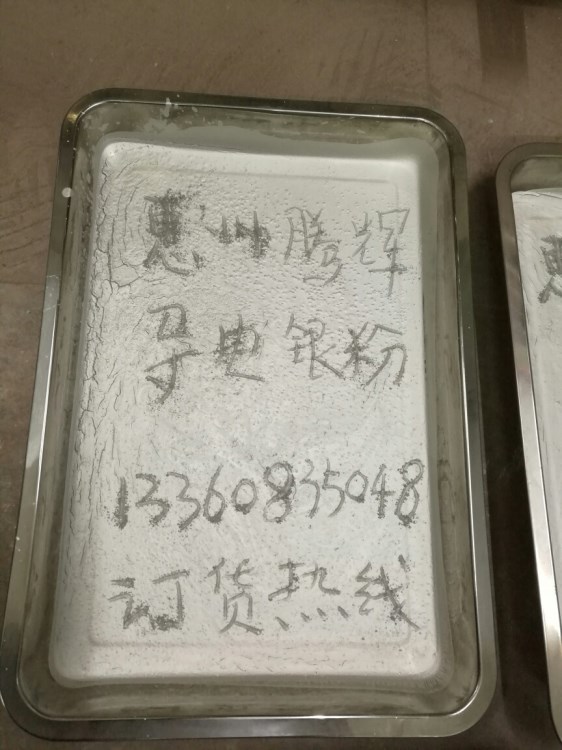 惠州腾辉
导电银粉
13360835048
订货热线
惠